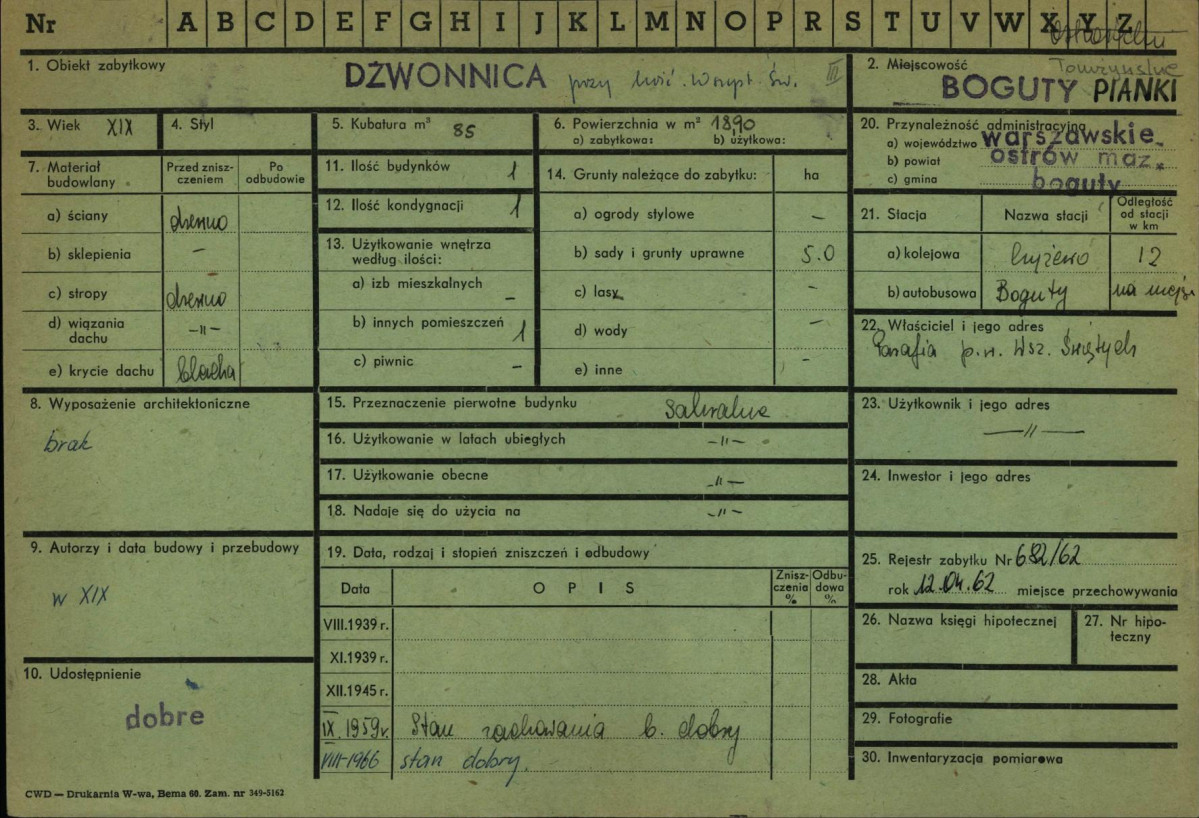 Nr A B C D E F G H I J K L M N O P R S T U V W X Y Z
1. Obiekt zabytkowy DZWONNICA przy kość. Wszyst. Św. III
2. Miejscowość
BOGUTY PIANKI
3. Wiek XIX
4. Styl
5. Kubatura m³ 85
6. Powierzchnia w m² 1890
a) zabytkowa: b) użytkowa:
20. Przynależność administracyjna
a) województwo warszawskie
b) powiat ostrów maz.
c) gmina boguty
7. Materiał budowlany
Przed zniszczeniem
Po odbudowie
a) ściany drewno
b) sklepienia –
c) stropy drewno
d) wiązania dachu –„–
e) krycie dachu blacha
11. Ilość budynków 1
12. Ilość kondygnacji 1
13. Użytkowanie wnętrza
według ilości:
a) izb mieszkalnych –
b) innych pomieszczeń 1
c) piwnic –
14. Grunty należące do zabytku: ha
a) ogrody stylowe –
b) sady i grunty uprawne 5.0
c) lasy –
d) wody –
e) inne –
21. Stacja
Nazwa stacji
Odległość od stacji w km
a) kolejowa Czyżewo 12
b) autobusowa Boguty na miejs
22. Właściciel i jego adres
Parafia p.w. Wsz. Świętych
8. Wyposażenie architektoniczne
brak
15. Przeznaczenie pierwotne budynku sakralne
16. Użytkowanie w latach ubiegłych –„–
17. Użytkowanie obecne –„–
18. Nadaje się do użycia na –„–
23. Użytkownik i jego adres
–„–
24. Inwestor i jego adres
9. Autorzy i data budowy i przebudowy
w XIX
19. Data, rodzaj i stopień zniszczeń i odbudowy
Data OPIS Zniszczenia % Odbudowa %
VIII.1939 r.
XI.1939 r.
XII.1945 r.
IX.1959 r. Stan zachowania b. dobry
VIII-1966 stan dobry.
25. Rejestr zabytku Nr 682/62
rok 12.04.62 miejsce przechowywania
26. Nazwa księgi hipotecznej
27. Nr hipoteczny
10. Udostępnienie
dobre
28. Akta
29. Fotografie
30. Inwentaryzacja pomiarowa
CWD — Drukarnia W-wa, Bema 60. Zam. nr 349-5162